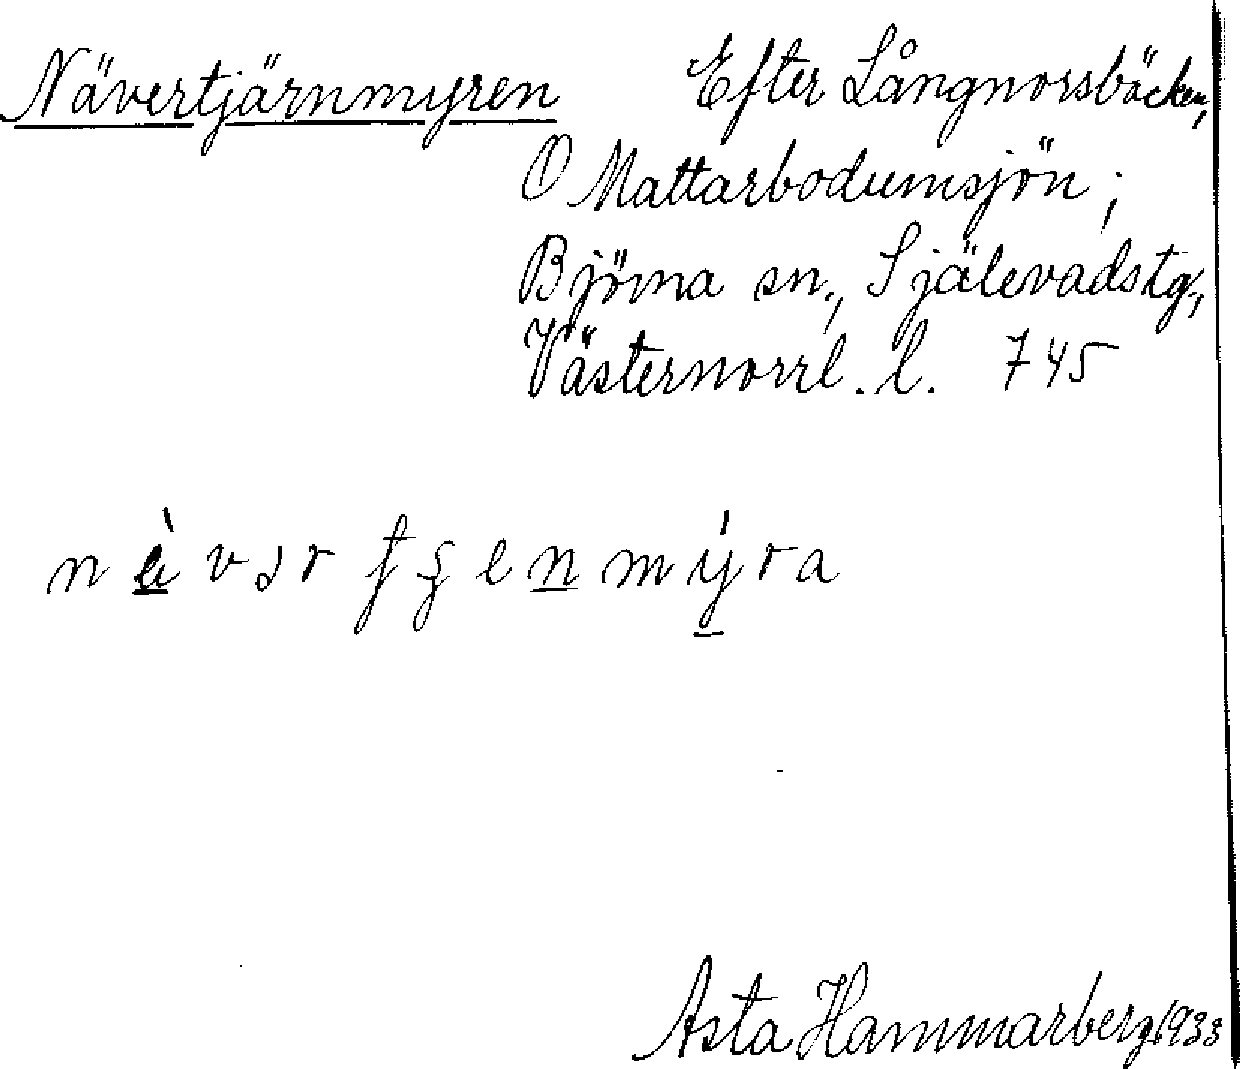 Nävertjärnmyren Efter Långnorsbäcken,
O Mattarbodumsjön;
Björna sn., Själevads tg,
Västernorrl. l. 745
Asta Hammarberg 1933